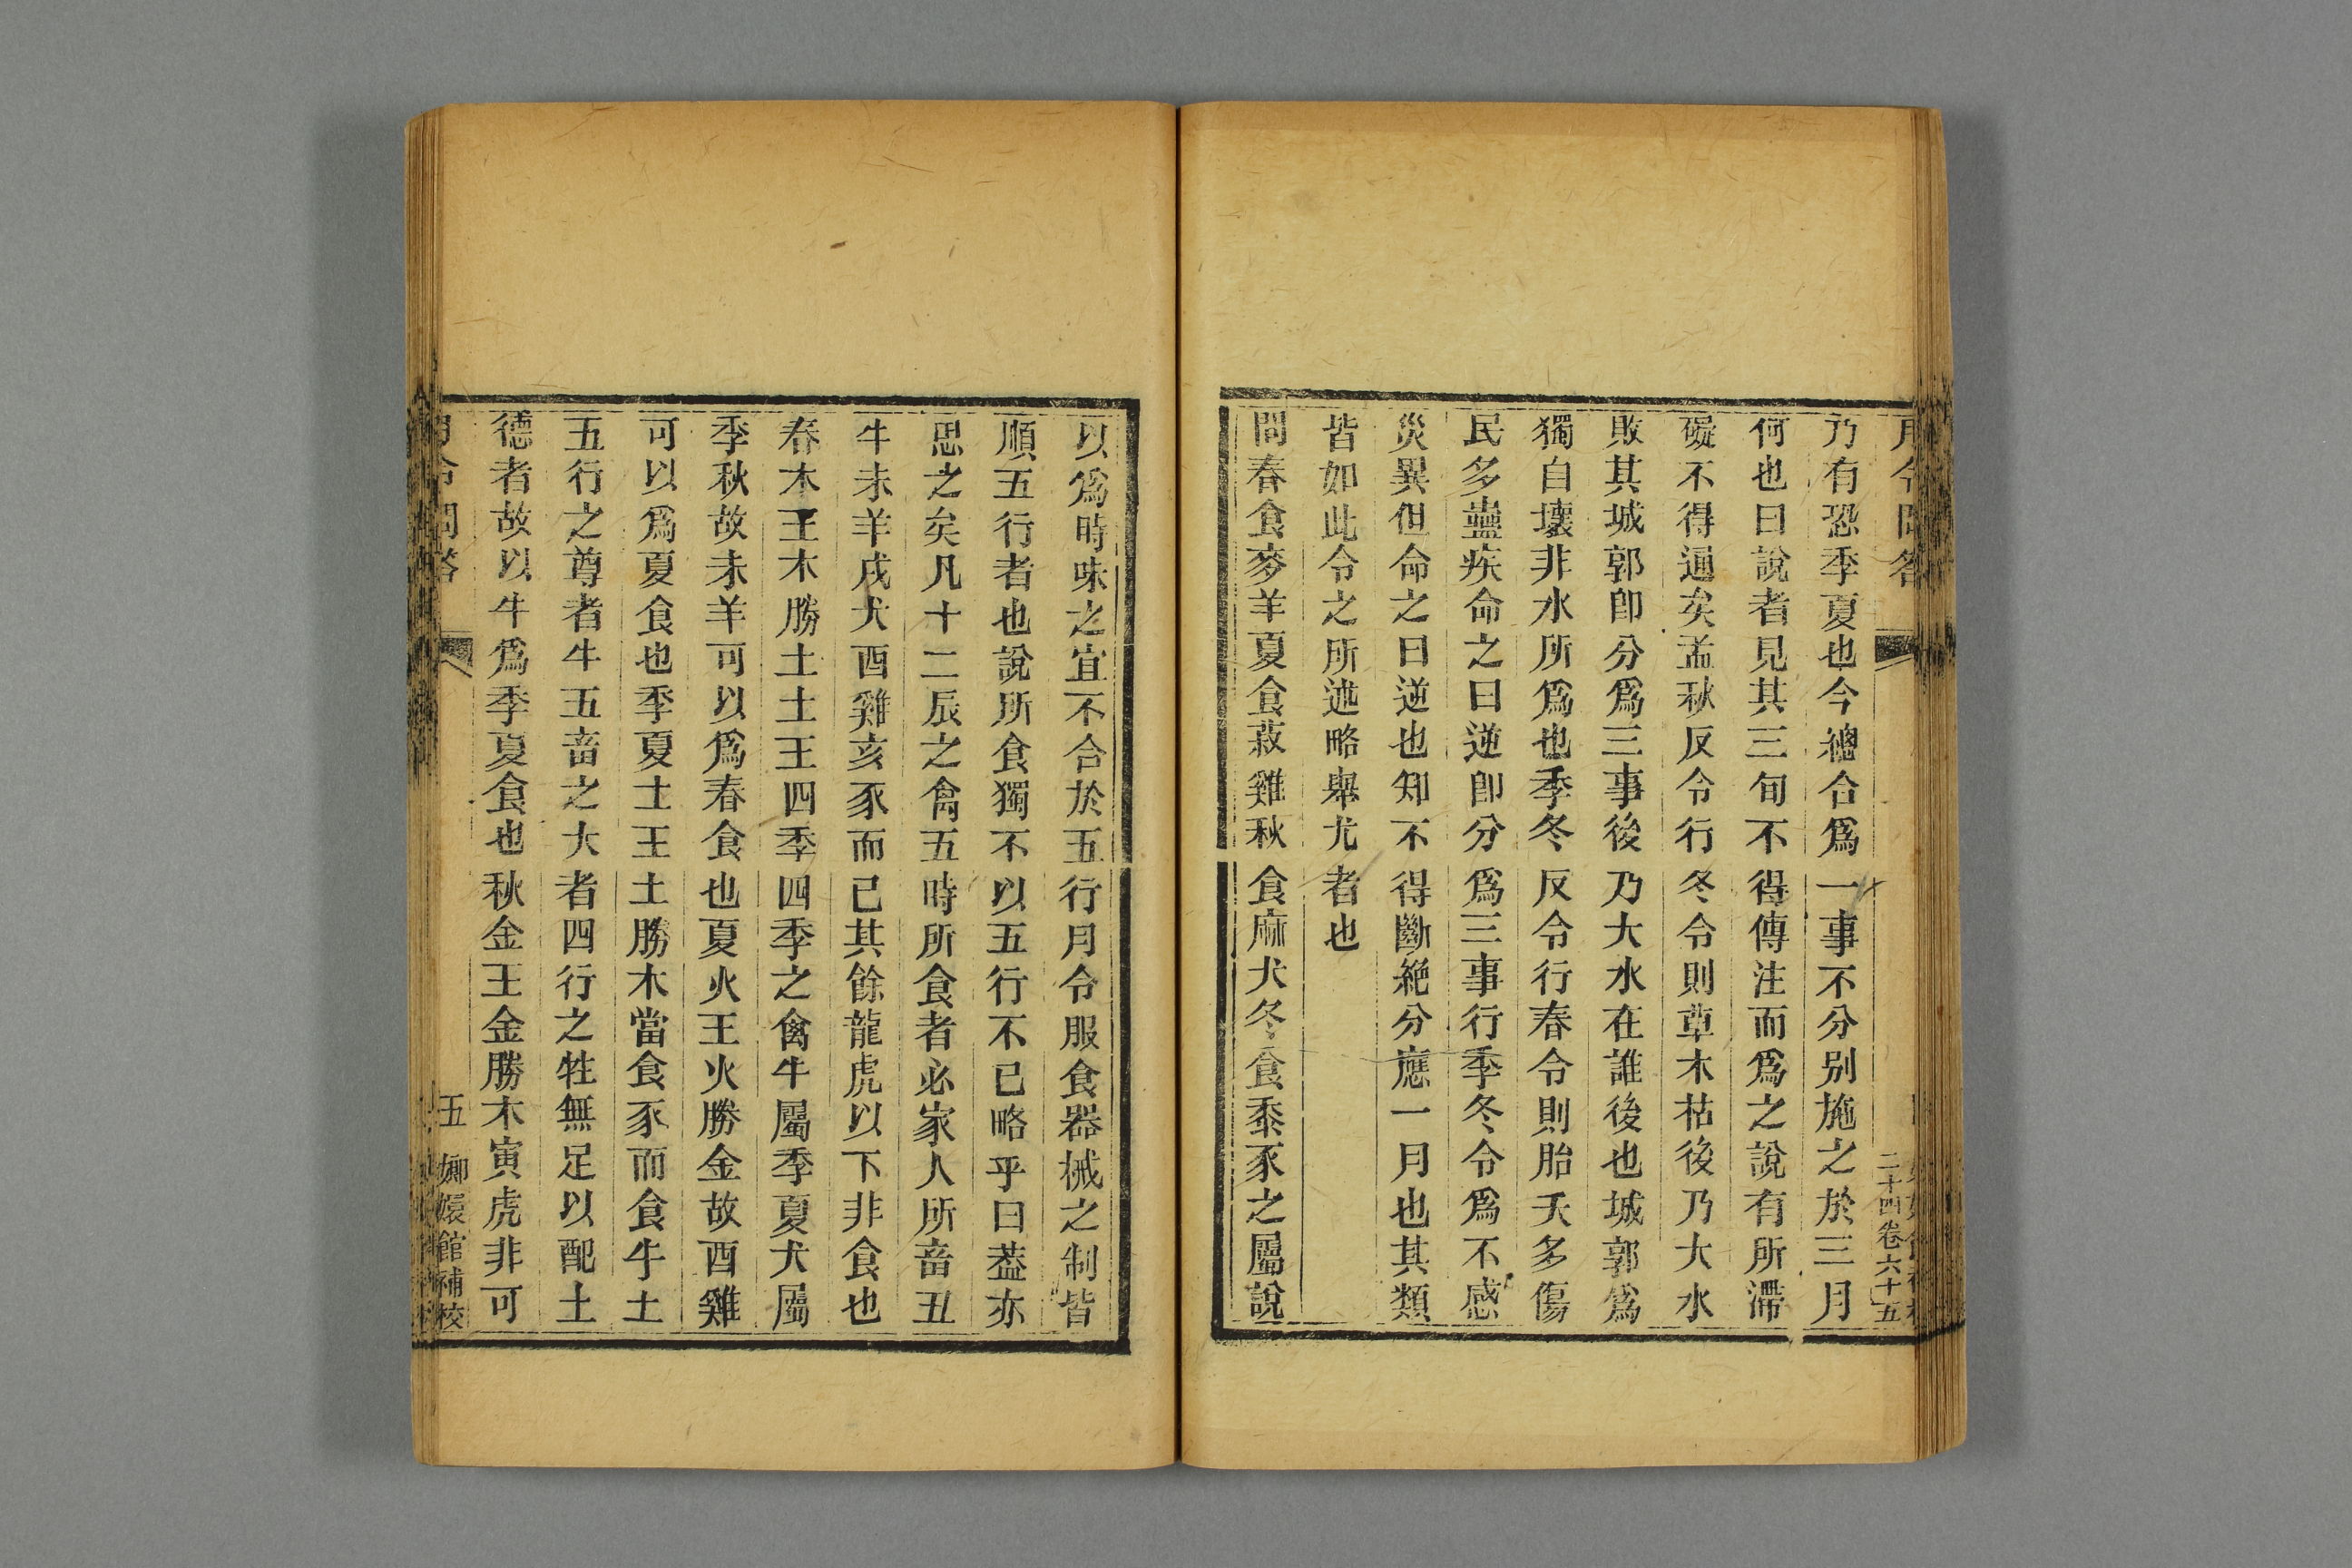 月令問答
二十四卷六十五
乃有恐季夏也今總合爲一事不分别施之於三月
何也曰說者見其三旬不得傳注而爲之說有所滯
礙不得通矣孟秋反令行冬令則草木枯後乃大水
敗其城郭卽分爲三事後乃大水在誰後也城郭爲
獨自壞非水所爲也季冬反令行春令則胎夭多傷
民多蠱疾命之曰逆卽分爲三事行季冬令爲不感
災異但命之曰逆也知不得斷絕分應一月也其類
皆如此令之所述略舉尤者也
問春食麥羊夏食菽雞秋食麻犬冬食黍豕之屬說
以爲時味之宜不合於五行月令服食器械之制皆
順五行者也說所食獨不以五行不已略乎曰蓋亦
思之矣凡十二辰之禽五時所食者必家人所畜丑
牛未羊戌犬酉雞亥豕而已其餘龍虎以下非食也
春木王木勝土土王四季四季之禽牛屬季夏犬屬
季秋故未羊可以爲春食也夏火王火勝金故酉雞
可以爲夏食也季夏土王土勝木當食豕而食牛土
五行之尊者牛五畜之大者四行之牲無足以配土
德者故以牛爲季夏食也秋金王金勝木寅虎非可
月令問答
五
嫏嬛館補校